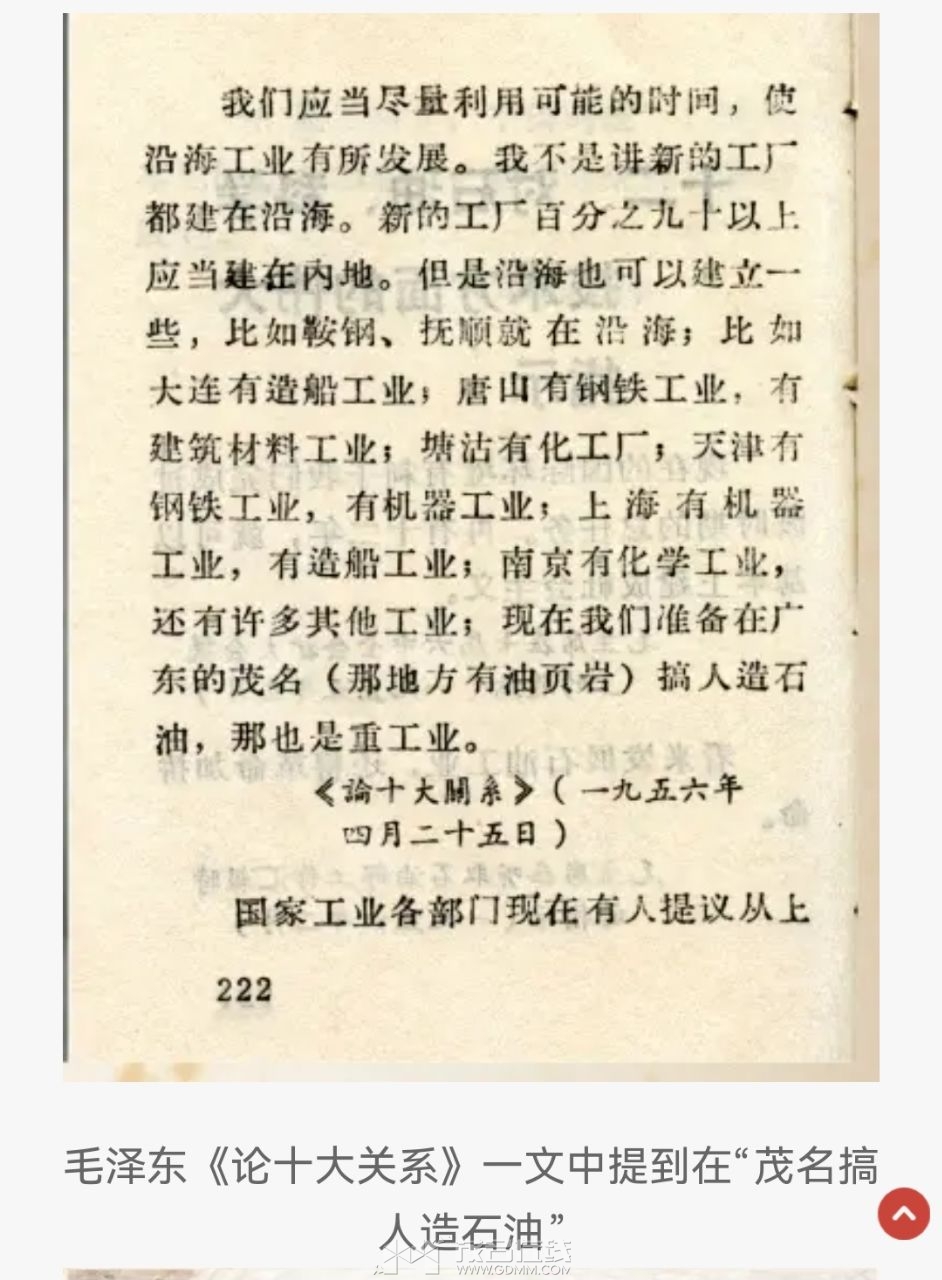 我们应当尽量利用可能的时间，使
沿海工业有所发展。我不是讲新的工厂
都建在沿海。新的工厂百分之九十以上
应当建在内地。但是沿海也可以建立一
些，比如鞍钢、抚顺就在沿海；比如
大连有造船工业；唐山有钢铁工业，有
建筑材料工业；塘沽有化工厂；天津有
钢铁工业，有机器工业；上海有机器
工业，有造船工业；南京有化学工业，
还有许多其他工业；现在我们准备在广
东的茂名（那地方有油页岩）搞人造石
油，那也是重工业。
《論十大關系》（一九五六年
四月二十五日）
国家工业各部门现在有人提议从上
222
毛泽东《论十大关系》一文中提到在“茂名搞
人造石油”
茂名在线
WWW.GDMM.COM